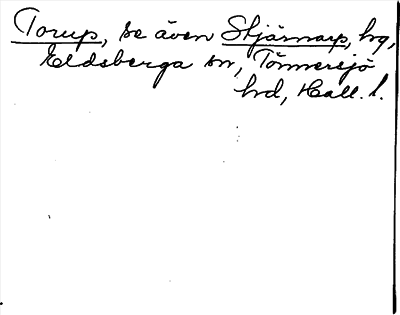 Torup, se även Stjärnarp, hg,
Eldsberga sn, Tönnersjö
hrd, Hall. l.